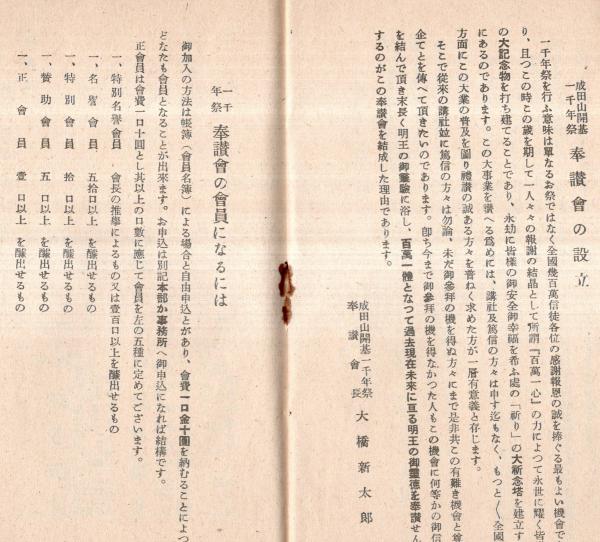 成田山開基一千年祭 奉讃會の設立
一千年祭を行ふ意味は單なるお祭ではなく全國幾百萬信徒各位の感謝報恩の誠を捧ぐる最もよい機會で
り、且つこの時この歲を期して一人々々の報謝の結晶として所謂『百萬一心』の力によつて永世に耀く皆
の大記念物を打ち建てることであり、永劫に皆樣の御安全御幸福を希ふ處の「祈り」の大祈念塔を建立す
にあるのであります。この大事業を讃へる爲めには、講社及篤信の方々は申す迄もなく、もつと〳〵全國
方面にこの大業の普及を圖り禮讃の誠ある方々を普ねく求めた方が一層有意義と存じます。
そこで從來の講社並に篤信の方々は勿論、未だ御參拜の機を得ぬ方々にまで是非共この有難き機會と
企てとを傳へて頂きたいのであります。卽ち今まで御參拜の機を得なかつた人もこの機會に何等かの御信
を結んで頂き末長く明王の御靈驗に浴し、百萬一體となつて過去現在未來に亘る明王の御靈德を奉讃せん
するのがこの奉讃會を結成した理由であります。
成田山開基一千年祭
奉讃會長 大橋新太郞
一千年祭 奉讃會の會員になるには
御加入の方法は帳簿（會員名簿）による場合と自由申込とがあり、會費一口金十圓を納むることによつ
どなたも會員となることが出來ます。お申込は別記本部か事務所へ御申込になれば結構です。
正會員は會費一口十圓とし其以上の口數に應じて會員を左の五種に定めてございます。
一、特別名譽會員 會長の推擧によるもの又は壹百口以上を醵出せるもの
一、名譽會員 五拾口以上を醵出せるもの
一、特別會員 拾口以上を醵出せるもの
一、贊助會員 五口以上を醵出せるもの
一、正會員 壹口以上を醵出せるもの